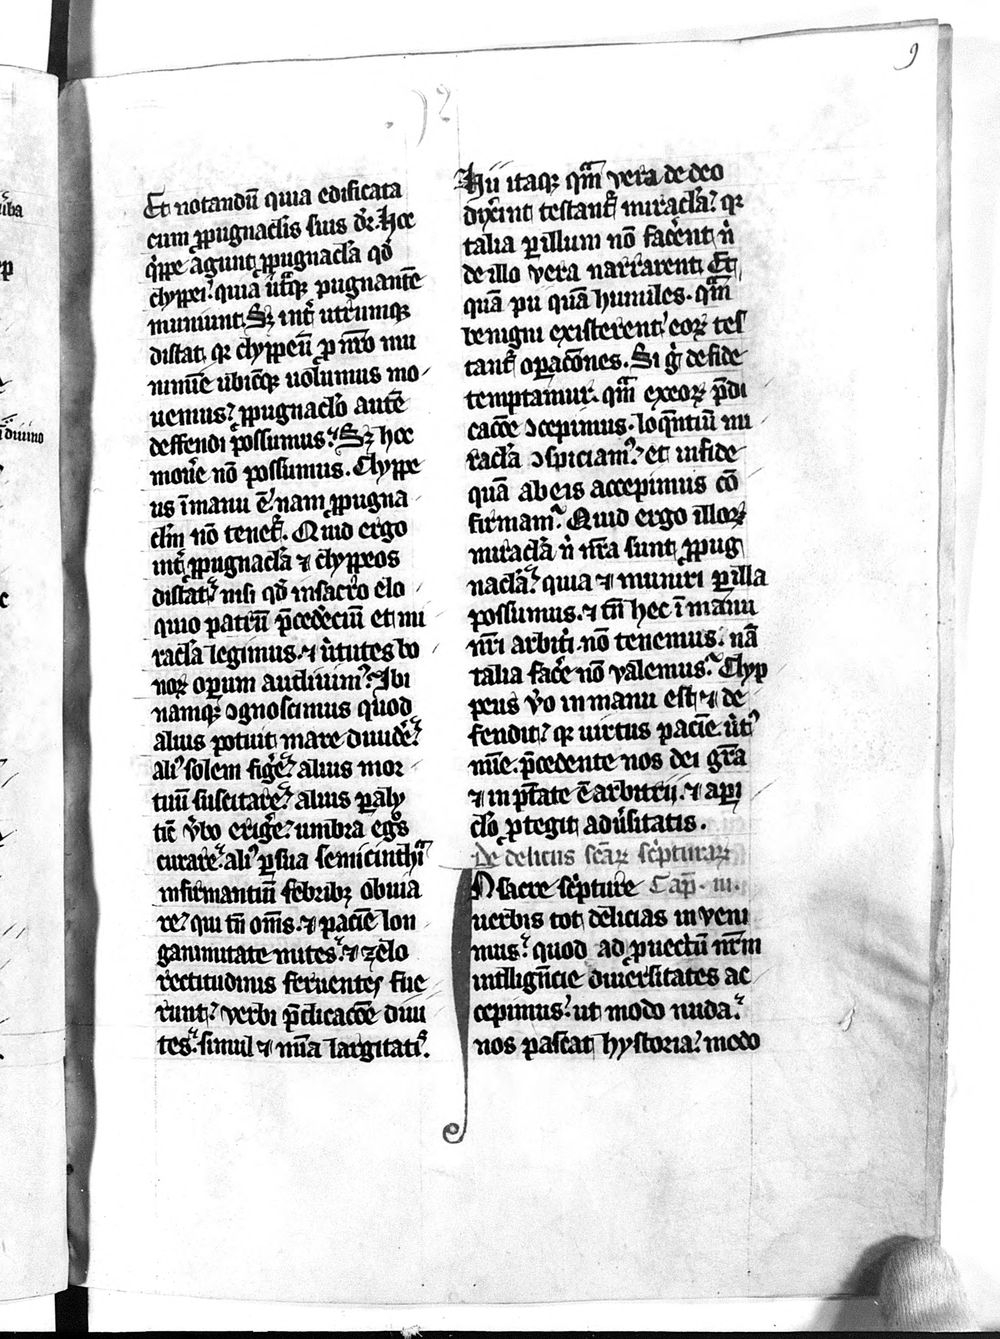 9
Et notandū quia edificata
cum ꝓpugnacl̄is suis dr̄. hoc
q̄ippe agunt ꝓpugnacl̄a qd̄
clyppei. quia utͣqꝫ pugnantē
muniunt. Sꝫ int̄ utrumqꝫ
distat. qꝛ clyppeū ꝑ nr̄o mu
nimīe ubicūqꝫ uolumus mo
uemus. ꝓpugnacl̄o autē
deffendi possumus. Sꝫ hoc
mou̾e nō possumus. Clyppe
us ī manu ē. nam ꝓpugna
cl̄m nō tenet᷑. Quid ergo
int̄ ꝓpugnacl̄a ⁊ clyppeos
distat. nisi qd̄ in sacro elo
quio patrū p̄cedēciū et mi
racl̄a legimus. ⁊ ūtutes bo
noꝝ operum audiuim᷒. Ibi
namqꝫ ↄgnoscimus quod
alius potuit mare diuid̾e.
ali᷒ solem fig̾e. alius mor
tuū suscitare. alius paly
ticū ūbo erig̾e. umbra eg̾os
curare. ali᷒ ꝑ sua semicinthia
infirmantiū febribꝫ obuia
re. qui tn̄ om̄s. ⁊ paciēcie lon
ganimitate mites. ⁊ zelo
rectitudinis feruentes fue
runt. verbi p̄dicacōe diui
tes. simul ⁊ mīa largitatis.
Hii itaqꝫ qm̄ vera de deo
dixerint testant᷑ miracl̄a. qꝛ
talia ꝑ illum nō fac̾ent. n̄
de illo vera narrarent. Et
quā pii quā humiles. qm̄
benigni existerent. eoꝝ tes
tant᷑ oꝑacōnes. Si g̊ de fide
temptamur. qm̄ ex eoꝝ p̄di
cacōe ↄcepimus. loq̄ntiū mi
racl̄a ↄspiciam᷒. et in fide
quā ab eis accepimus cō
firmam᷒. Quid ergo illoꝝ
miracl̄a n̄ nr̄a sunt ꝓpug
nacl̄a. quia ⁊ muniri ꝑ illa
possumus. ⁊ tn̄ hec ī manu
nr̄i arbitͥi nō tenemus. nā
talia fac̾e nō valemus. Clyp
peus v̊o in manu est ⁊ de
fendit. qꝛ uirtus paciēcie. ūt᷒
mīe. p̄cedente nos dei gr̄a
⁊ in ptāte ē arbitrii. ⁊ a peri
cl̄o ꝓtegit adūsitatis.
De deliciis sc̄aꝝ sc̾pturaꝝ
In sacre sc̾pture Cap̄. iii.
uerbis tot delicias inveni
mus. quod ad ꝓuectū nr̄m
intllign̄cie diuersitates ac
cepimus. ut modo nuda
nos pascat hystoria. modo